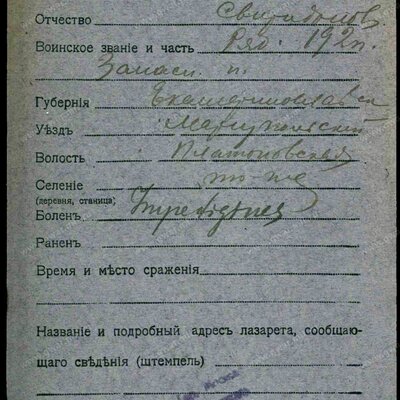 Отчество
Воинское званіе и часть Ряд. 192 п.
Запасн. п.
Губернія Екатеринославск
Уѣздъ Маріупольскій
Волость Платоновская
Селеніе то-же
(деревня, станица)
Боленъ Impetigines
Раненъ
Время и мѣсто сраженія
Названіе и подробный адресъ лазарета, сообщаю-
щаго свѣдѣнія (штемпель)